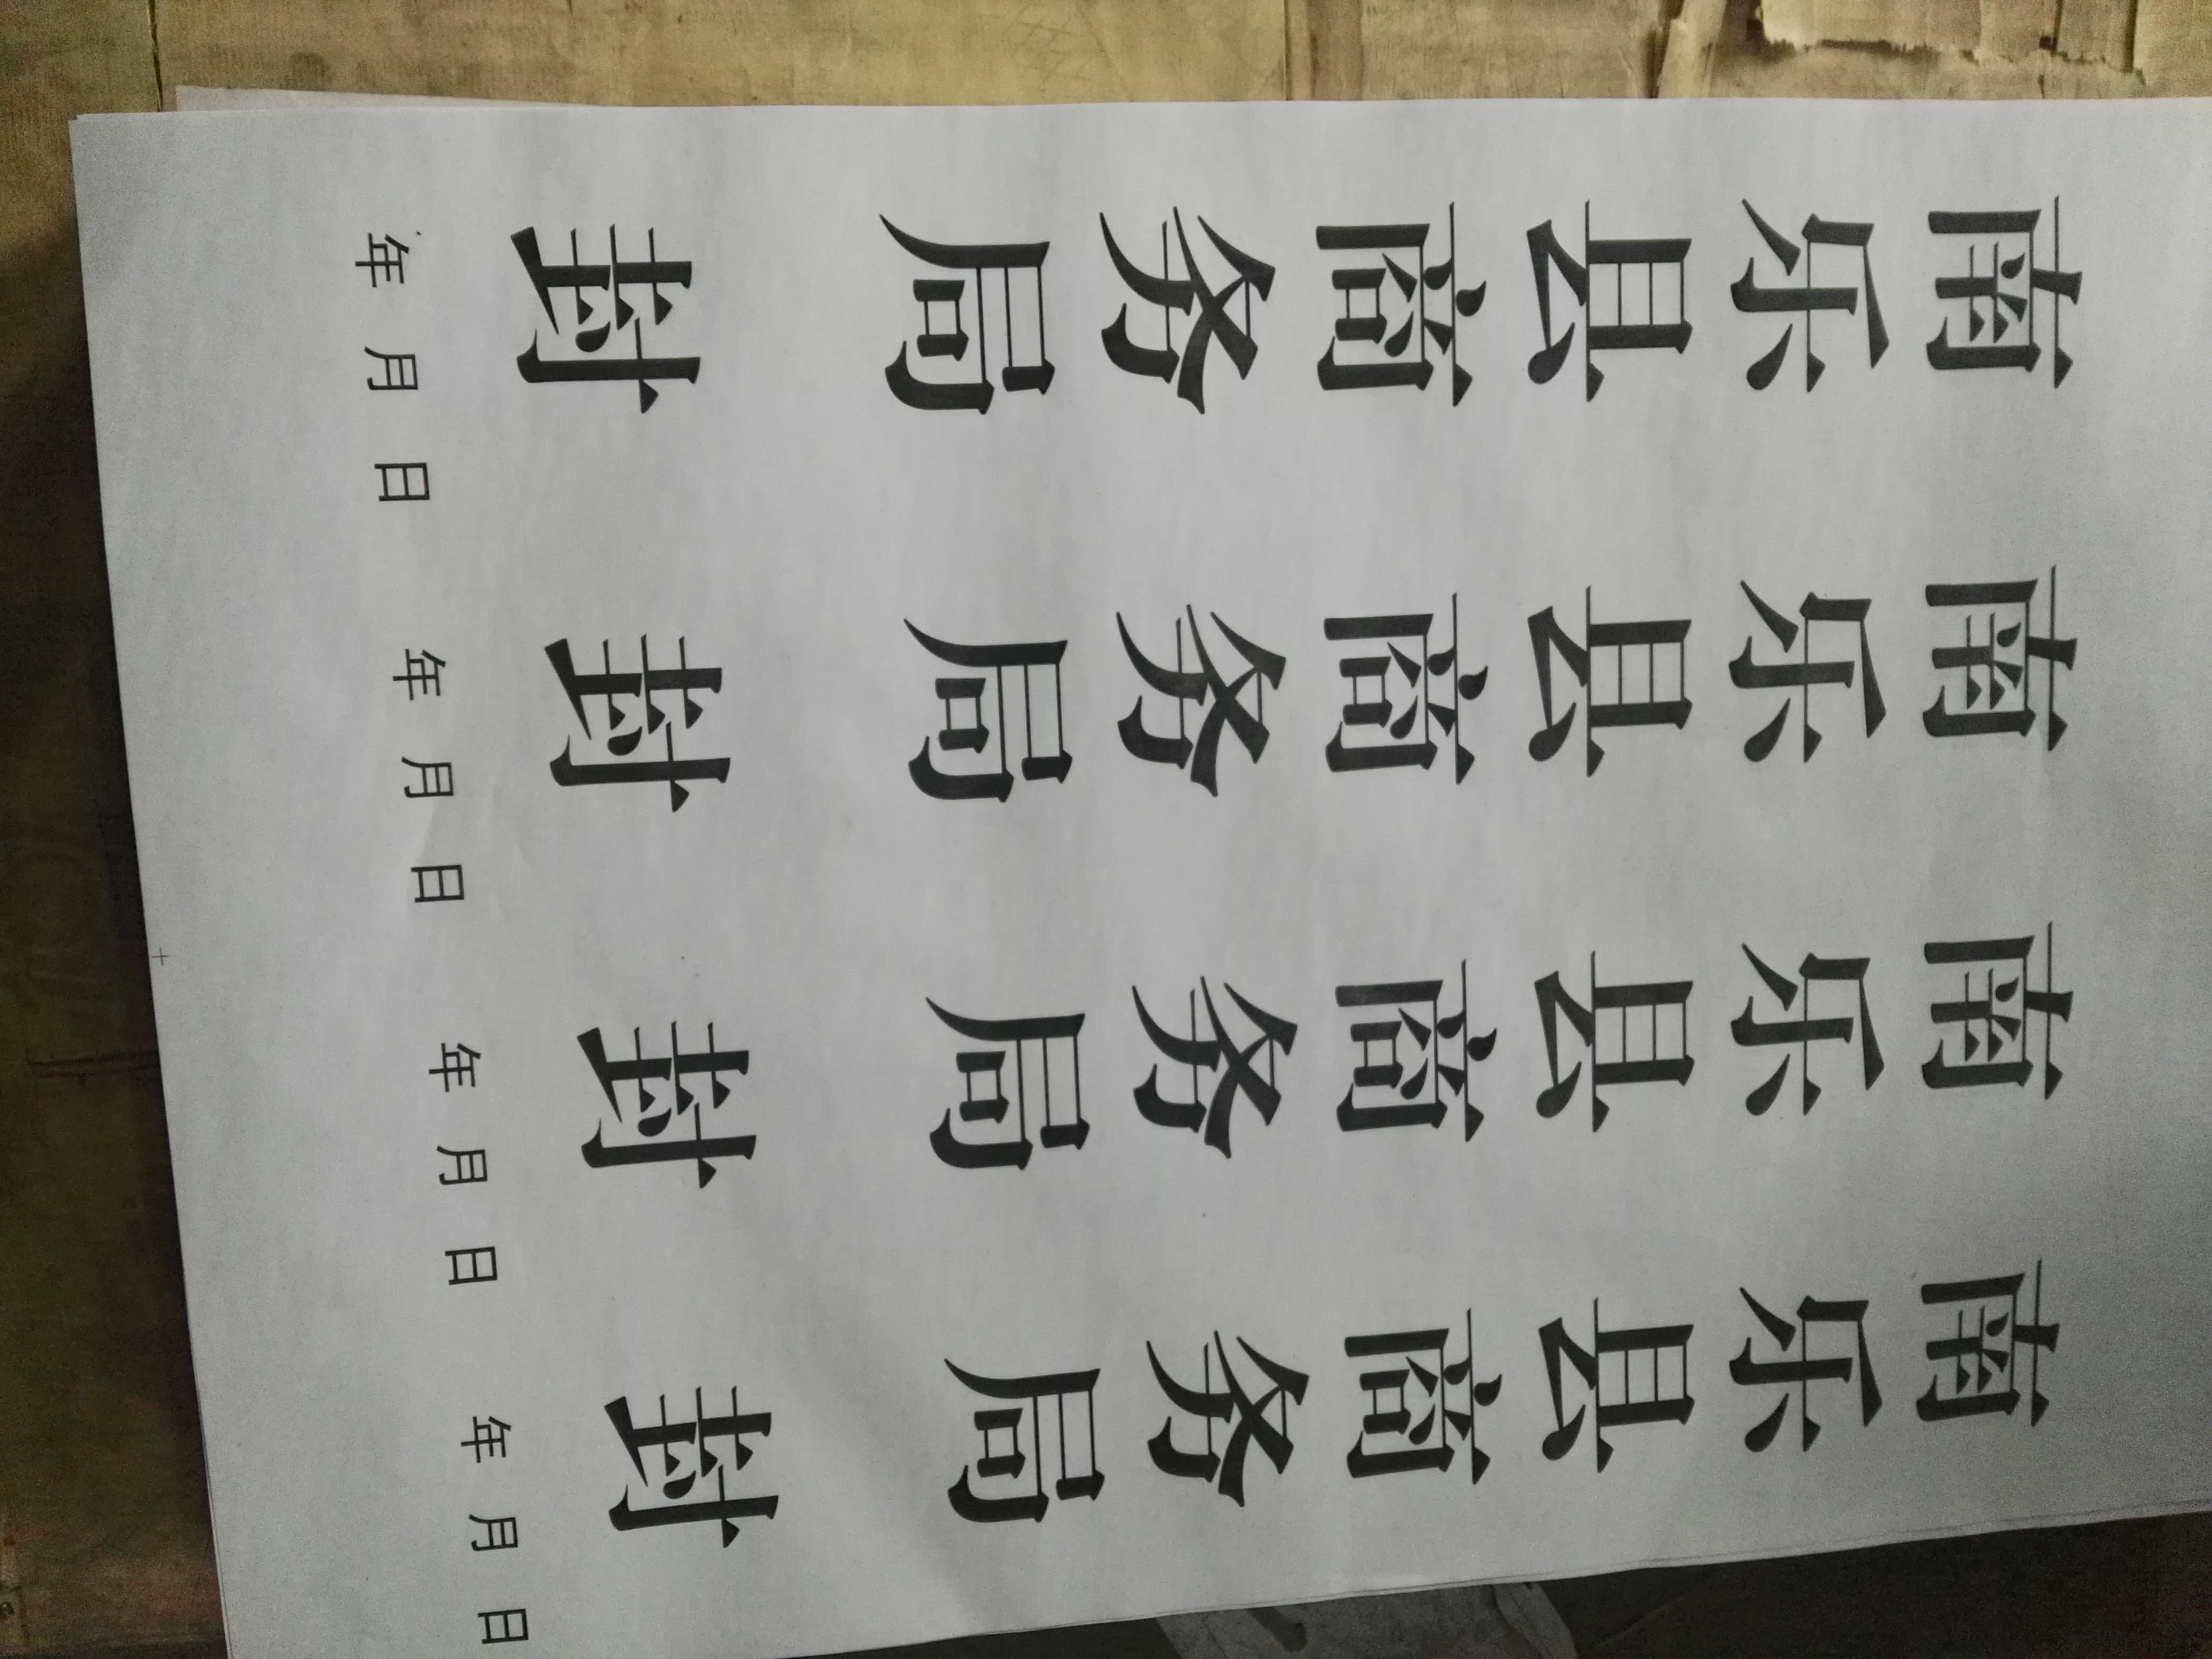 南乐县商务局 封
年 月 日
南乐县商务局 封
年 月 日
南乐县商务局 封
年 月 日
南乐县商务局 封
年 月 日